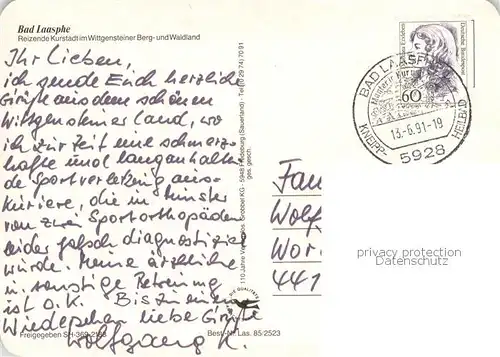 Bad Laasphe
Reizende Kurstadt im Wittgensteiner Berg- und Waldland
Ihr Lieben,
ich sende Euch herzliche
Grüße aus dem schönen
Wittgensteiner Land, wo
ich zur Zeit eine schmerz-
hafte und langanhalten
de Sportverletzung aus-
kuriere, die in Münster
von zwei Sportorthopäden
leider falsch diagnostiziert
wurde. Meine ärztliche
in sonstige Betreuung
ist o.k. Bis zu einem
Wiedersehen liebe Grüße
Wolfgang K.
Freigegeben SH-369-2188
Best.-Nr. Las. 85/2523
110 Jahre Grobbel KG - 5948 Fredeburg (Sauerland) - Tel. (0 29 74) 70 91
ges. gesch.
60
Deutsche Bundespost
BAD LAASPHE
13.-6.91-19
KNEIPP-HEILBAD
5928
Fam
Wolf
Wor
441
privacy protection
Datenschutz